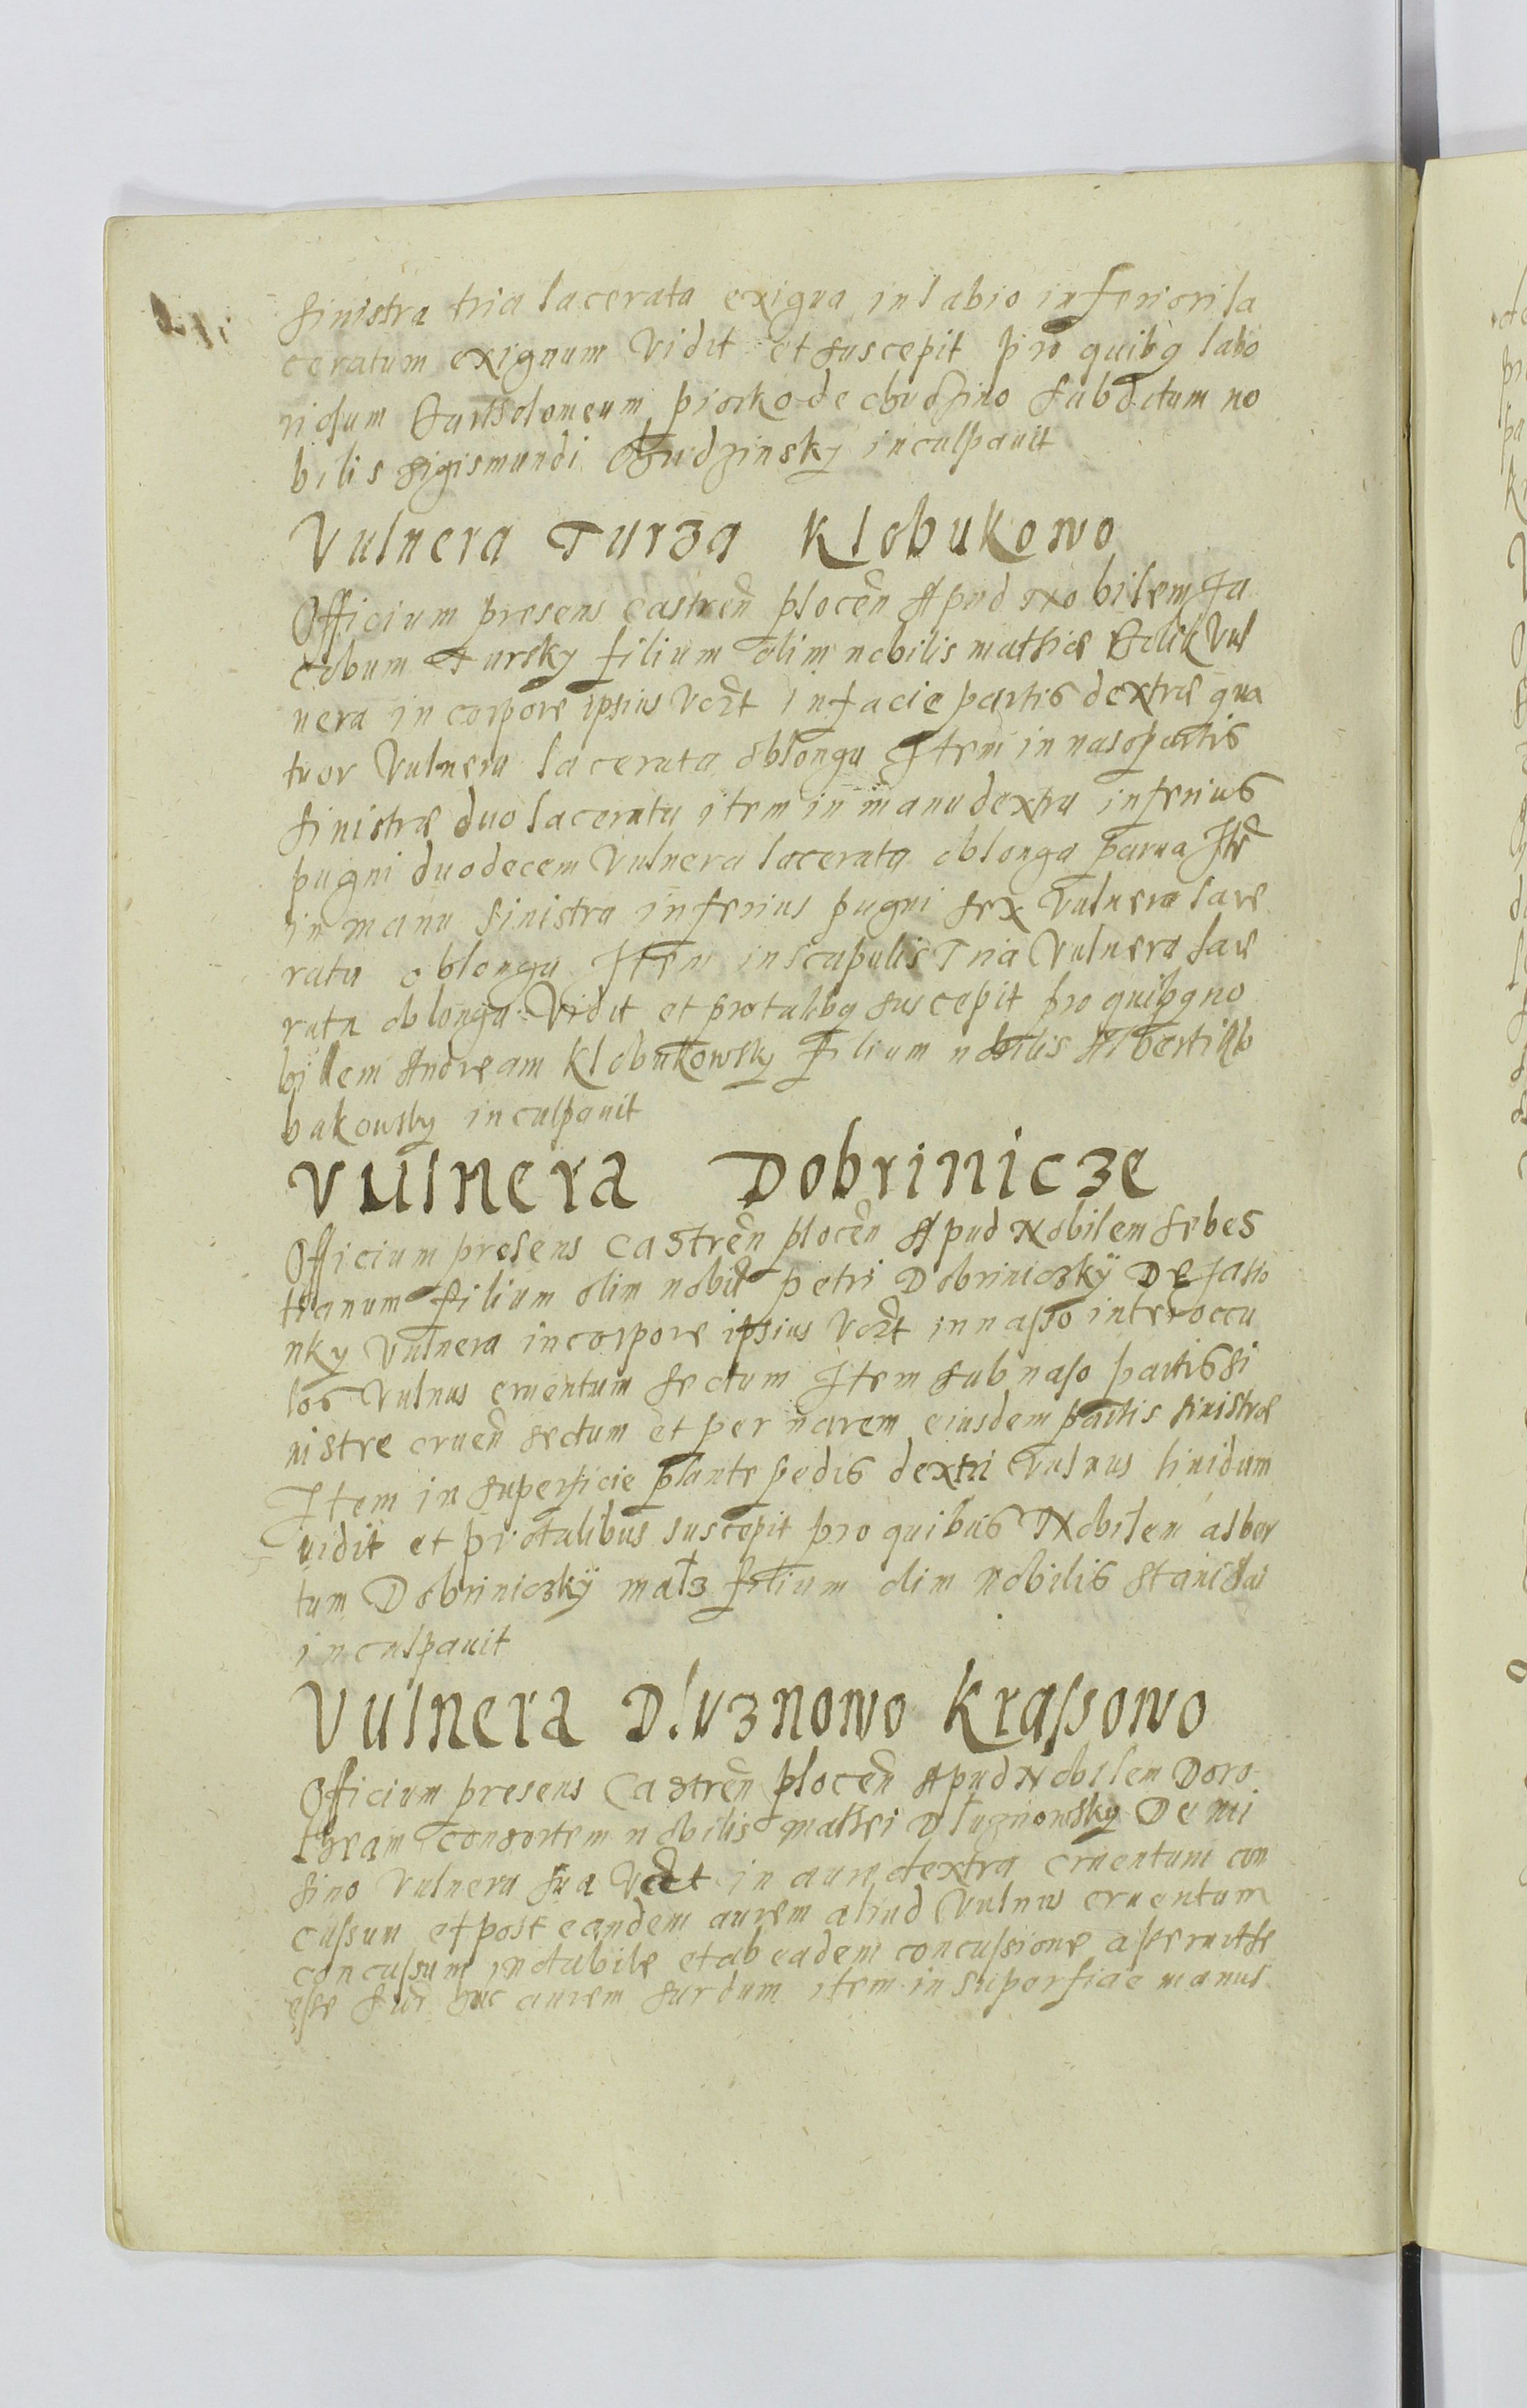 sinistra tria lacerata exigua in labio inferiori la
ceratum exiguum vidit et suscepit pro quibq labo
riosum Bartholomeum piorko de chudzino subditum no
bilis Sigismundi Chudzinsky inculpavit
Vulnera Turza Klobukowo
Officium presens castren̄ plocen̄ Apud Nobilem Ja
cobum Tursky filium olim nobilis mathiæ Bolik vul
nera in corpore ipsius vdzt in facie partis dextræ qua
tuor vulnera lacerata oblonga Item in naso partis
sinistræ duo lacerata item in manu dextra inferius
pugni duodecem vulnera lacerata oblonga parua Ite
in manu sinistra inferius pugni sex vulnera lace
rata oblonga Item in scapulis Tria vulnera lace
rata oblonga vidit et pro talibq suscepit pro quibq no
bilem Andream Klobukowsky filium nobilis Alberti klo
bukowsky inculpauit
Vulnera Dobrinicze
Officium presens Castren̄ plocen̄ Apud Nobilem sebes
tianum filium olim nobil petri Dobriniczkÿ De Jasio
nky vulnera in corpore ipsius vdzt in nasso inter occu
los vulnus cruentum sectum Item sub naso partis si
nistre cruen̄ sectum et per narem eiusdem partis sinistræ
Item in superficie plante pedis dextri vulnus liuidum
vidit et pro talibus suscepit pro quibus Nobilem alber
tum Dobriniczkÿ matz filium olim nobilis stanislai
inculpauit
Vulnera Dluznowo Krassowo
Officium presens Castren̄ plocen̄ Apud Nobilem Doro
theam consortem nobilis mathei Dluznowsky De mi
sino vulnera sua vdzt in aure dextra cruentum con
cussum et post eandem aurem aliud vulnus cruentum
concussum notabile et ab eadem concussione asseruit se
esse super hac aurem surdum item in superficie manus